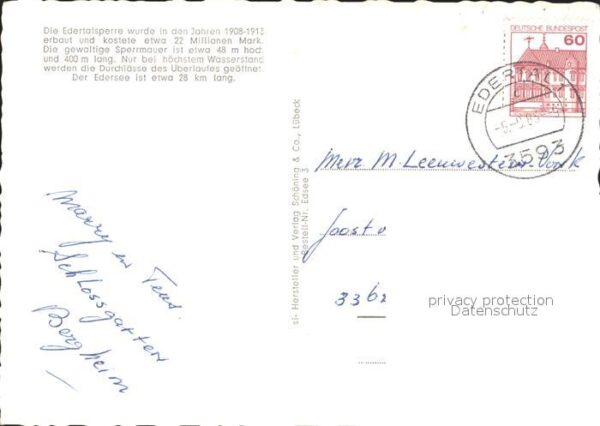 Die Edertalsperre wurde in den Jahren 1908-1913
erbaut und kostete etwa 22 Millionen Mark.
Die gewaltige Sperrmauer ist etwa 48 m hoch
und 400 m lang. Nur bei höchstem Wasserstand
werden die Durchlässe des Überlaufes geöffnet.
Der Edersee ist etwa 28 km lang.
DEUTSCHE BUNDESPOST
60
EDERTAL 1
3593
si- Hersteller und Verlag Schöning & Co., Lübeck
Bestell-Nr. Edsee 3
M. Leeuwestein
3362
privacy protection
Datenschutz
Marry en
Schlossgarten
Bergheim